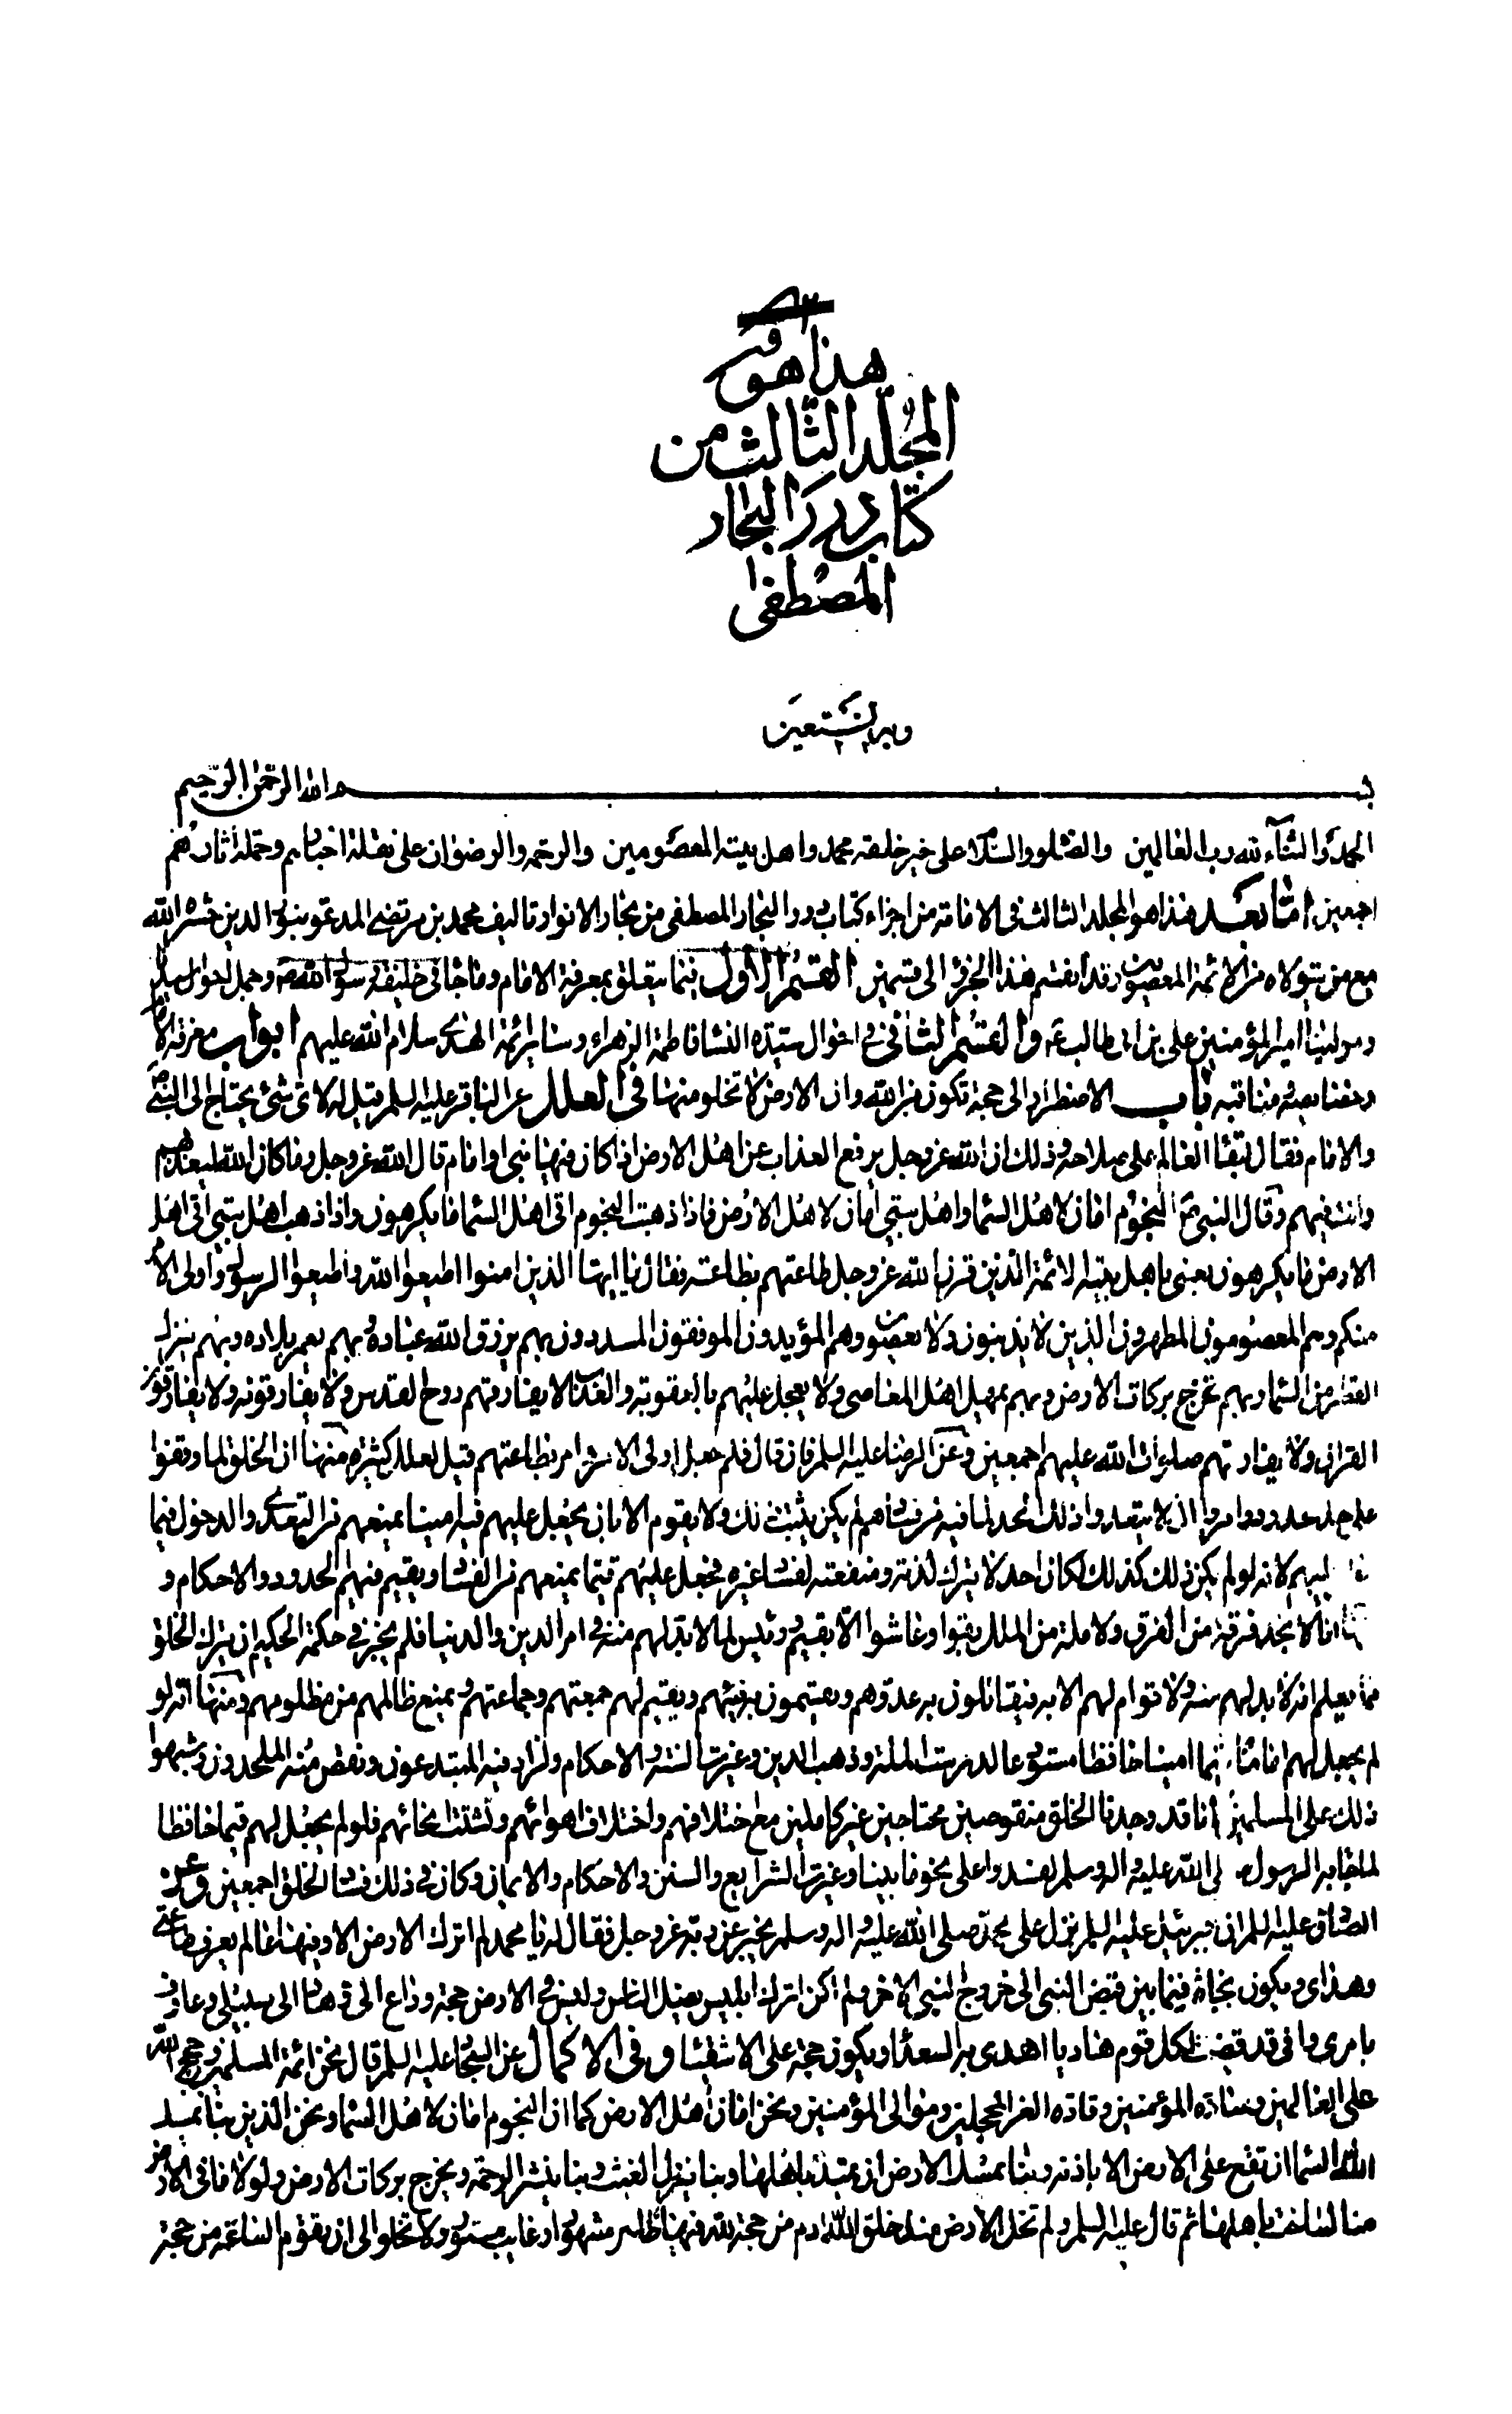 هذا هو
المجلد الثالث من
كتاب درر البحار
المصطفى
وبه نستعين
بسم الله الرحمن الرحيم
الحمد والثناء لله رب العالمين والصلوة والسلام على خير خلقه محمد واهل بيته المعصومين والرحمة والرضوان على نقلة اخبارهم وحملة اثارهم
اجمعين اما بعد فهذا هو المجلد الثالث فى الامامة من اجزاء كتاب درر البحار المصطفى من بحار الانوار تاليف محمد بن مرتضى المدعو بنور الدين حشره الله
مع من يتولاه من الائمة المعصومين وقد انقسم هذا الجزء الى قسمين القسم الاول فيما يتعلق بمعرفة الامام وما جاء فى خليفة رسول الله ص وجمل احوال سيدنا
ومولينا امير المؤمنين على بن ابى طالب ع والقسم الثانى فى احوال سيدة النساء فاطمة الزهراء وسائر ائمة الهدى سلام الله عليهم ابواب معرفة الامام
وخصايصه ومناقبه باب الاضطرار الى حجة تكون من الله وان الارض لا تخلو منها فى العلل عن الباقر عليه السلم قيل له لاى شئ يحتاج الى النبى ص
والامام فقال لبقاء العالم على صلاحه وذلك ان الله عز وجل يرفع العذاب عن اهل الارض اذا كان فيها نبى او امام قال الله عز وجل وما كان الله ليعذبهم
وانت فيهم وقال النبى ص النجوم امان لاهل السما واهل بيتى امان لاهل الارض فاذا ذهبت النجوم اتى اهل السما ما يكرهون واذا ذهب اهل بيتى اتى اهل
الارض ما يكرهون يعنى باهل بيته الائمة الذين قرن الله عز وجل طاعتهم بطاعته فقال يا ايها الذين امنوا اطيعوا الله واطيعوا الرسول واولى الامر
منكم وهم المعصومون المطهرون الذين لا يذنبون ولا يعصون وهم المؤيدون الموفقون المسددون بهم يرزق الله عباده وبهم يعمر بلاده وبهم ينزل
القطر من السما وبهم تخرج بركات الارض وبهم يمهل اهل المعاصى ولا يعجل عليهم بالعقوبة والعذاب لا يفارقهم روح القدس ولا يفارقونه ولا يفارقون
القران ولا يفارقهم صلوات الله عليهم اجمعين وعن الرضا عليه السلم فان قال فلم جعل اولى الامر وامر بطاعتهم قيل لعلل كثيرة منها ان الخلق لما وقفوا
على حد محدود وامروا ان لا يتعدوا ذلك الحد لما فيه من فسادهم لم يكن يثبت ذلك ولا يقوم الا بان يجعل عليهم فيه امينا يمنعهم من التعدى والدخول فيما
عليهم لانه لو لم يكن ذلك كذلك لكان احد لا يترك لذته ومنفعته لفساد غيره فجعل عليهم قيما يمنعهم من الفساد ويقيم فيهم الحدود والاحكام و
انا لا نجد فرقة من الفرق ولا ملة من الملل بقوا وعاشوا الا بقيم ورئيس لما لا بد لهم منه فى امر الدين والدنيا فلم يجز فى حكمة الحكيم ان يترك الخلق
مما يعلم انه لا بد لهم منه ولا قوام لهم الا به فيقاتلون به عدوهم ويقسمون به فيئهم ويقيم لهم جمعتهم وجماعتهم ويمنع ظالمهم من مظلومهم ومنها انه لو
لم يجعل لهم اماما قيما امينا حافظا مستودعا لدرست الملة وذهب الدين وغيرت السنة والاحكام ولزاد فيه المبتدعون ونقص منه الملحدون وشبهوا
ذلك على المسلمين انا قد وجدنا الخلق منقوصين محتاجين غير كاملين مع اختلافهم واختلاف اهوائهم وتشتت انحائهم فلو لم يجعل لهم قيما حافظا
لما جاء به الرسول صلى الله عليه واله وسلم لفسدوا على نحو ما بينا وغيرت الشرايع والسنن والاحكام والايمان وكان فى ذلك فساد الخلق اجمعين وعن
الصادق عليه السلم ان جبرئيل عليه السلم نزل على محمد صلى الله عليه واله وسلم يخبر عن ربه عز وجل فقال له يا محمد لم اترك الارض الا وفيها عالم يعرف طاعتى
وهداى ويكون نجاة فيما بين قبض النبى الى خروج النبى الاخر ولم اكن اترك ابليس يضل الناس وليس فى الارض حجة وداع الى وهاد الى سبيلى وعارف
بامرى وانى قد قضيت لكل قوم هاديا اهدى به السعداء ويكون حجة على الاشقياء وفى الاكمال عن السجاد عليه السلم قال نحن ائمة المسلمين وحجج الله
على العالمين وسادة المؤمنين وقادة الغر المحجلين وموالى المؤمنين ونحن امان اهل الارض كما ان النجوم امان لاهل السما ونحن الذين بنا يمسك
الله السما ان تقع على الارض الا باذنه وبنا يمسك الارض ان تميد باهلها وبنا ينزل الغيث وبنا ينشر الرحمة ويخرج بركات الارض ولولا ما فى الارض
منا لساخت باهلها ثم قال عليه السلم ولم تخل الارض منذ خلق الله ادم من حجة لله فيها ظاهر مشهور او غايب مستور ولا تخلو الى ان يقوم الساعة من حجة